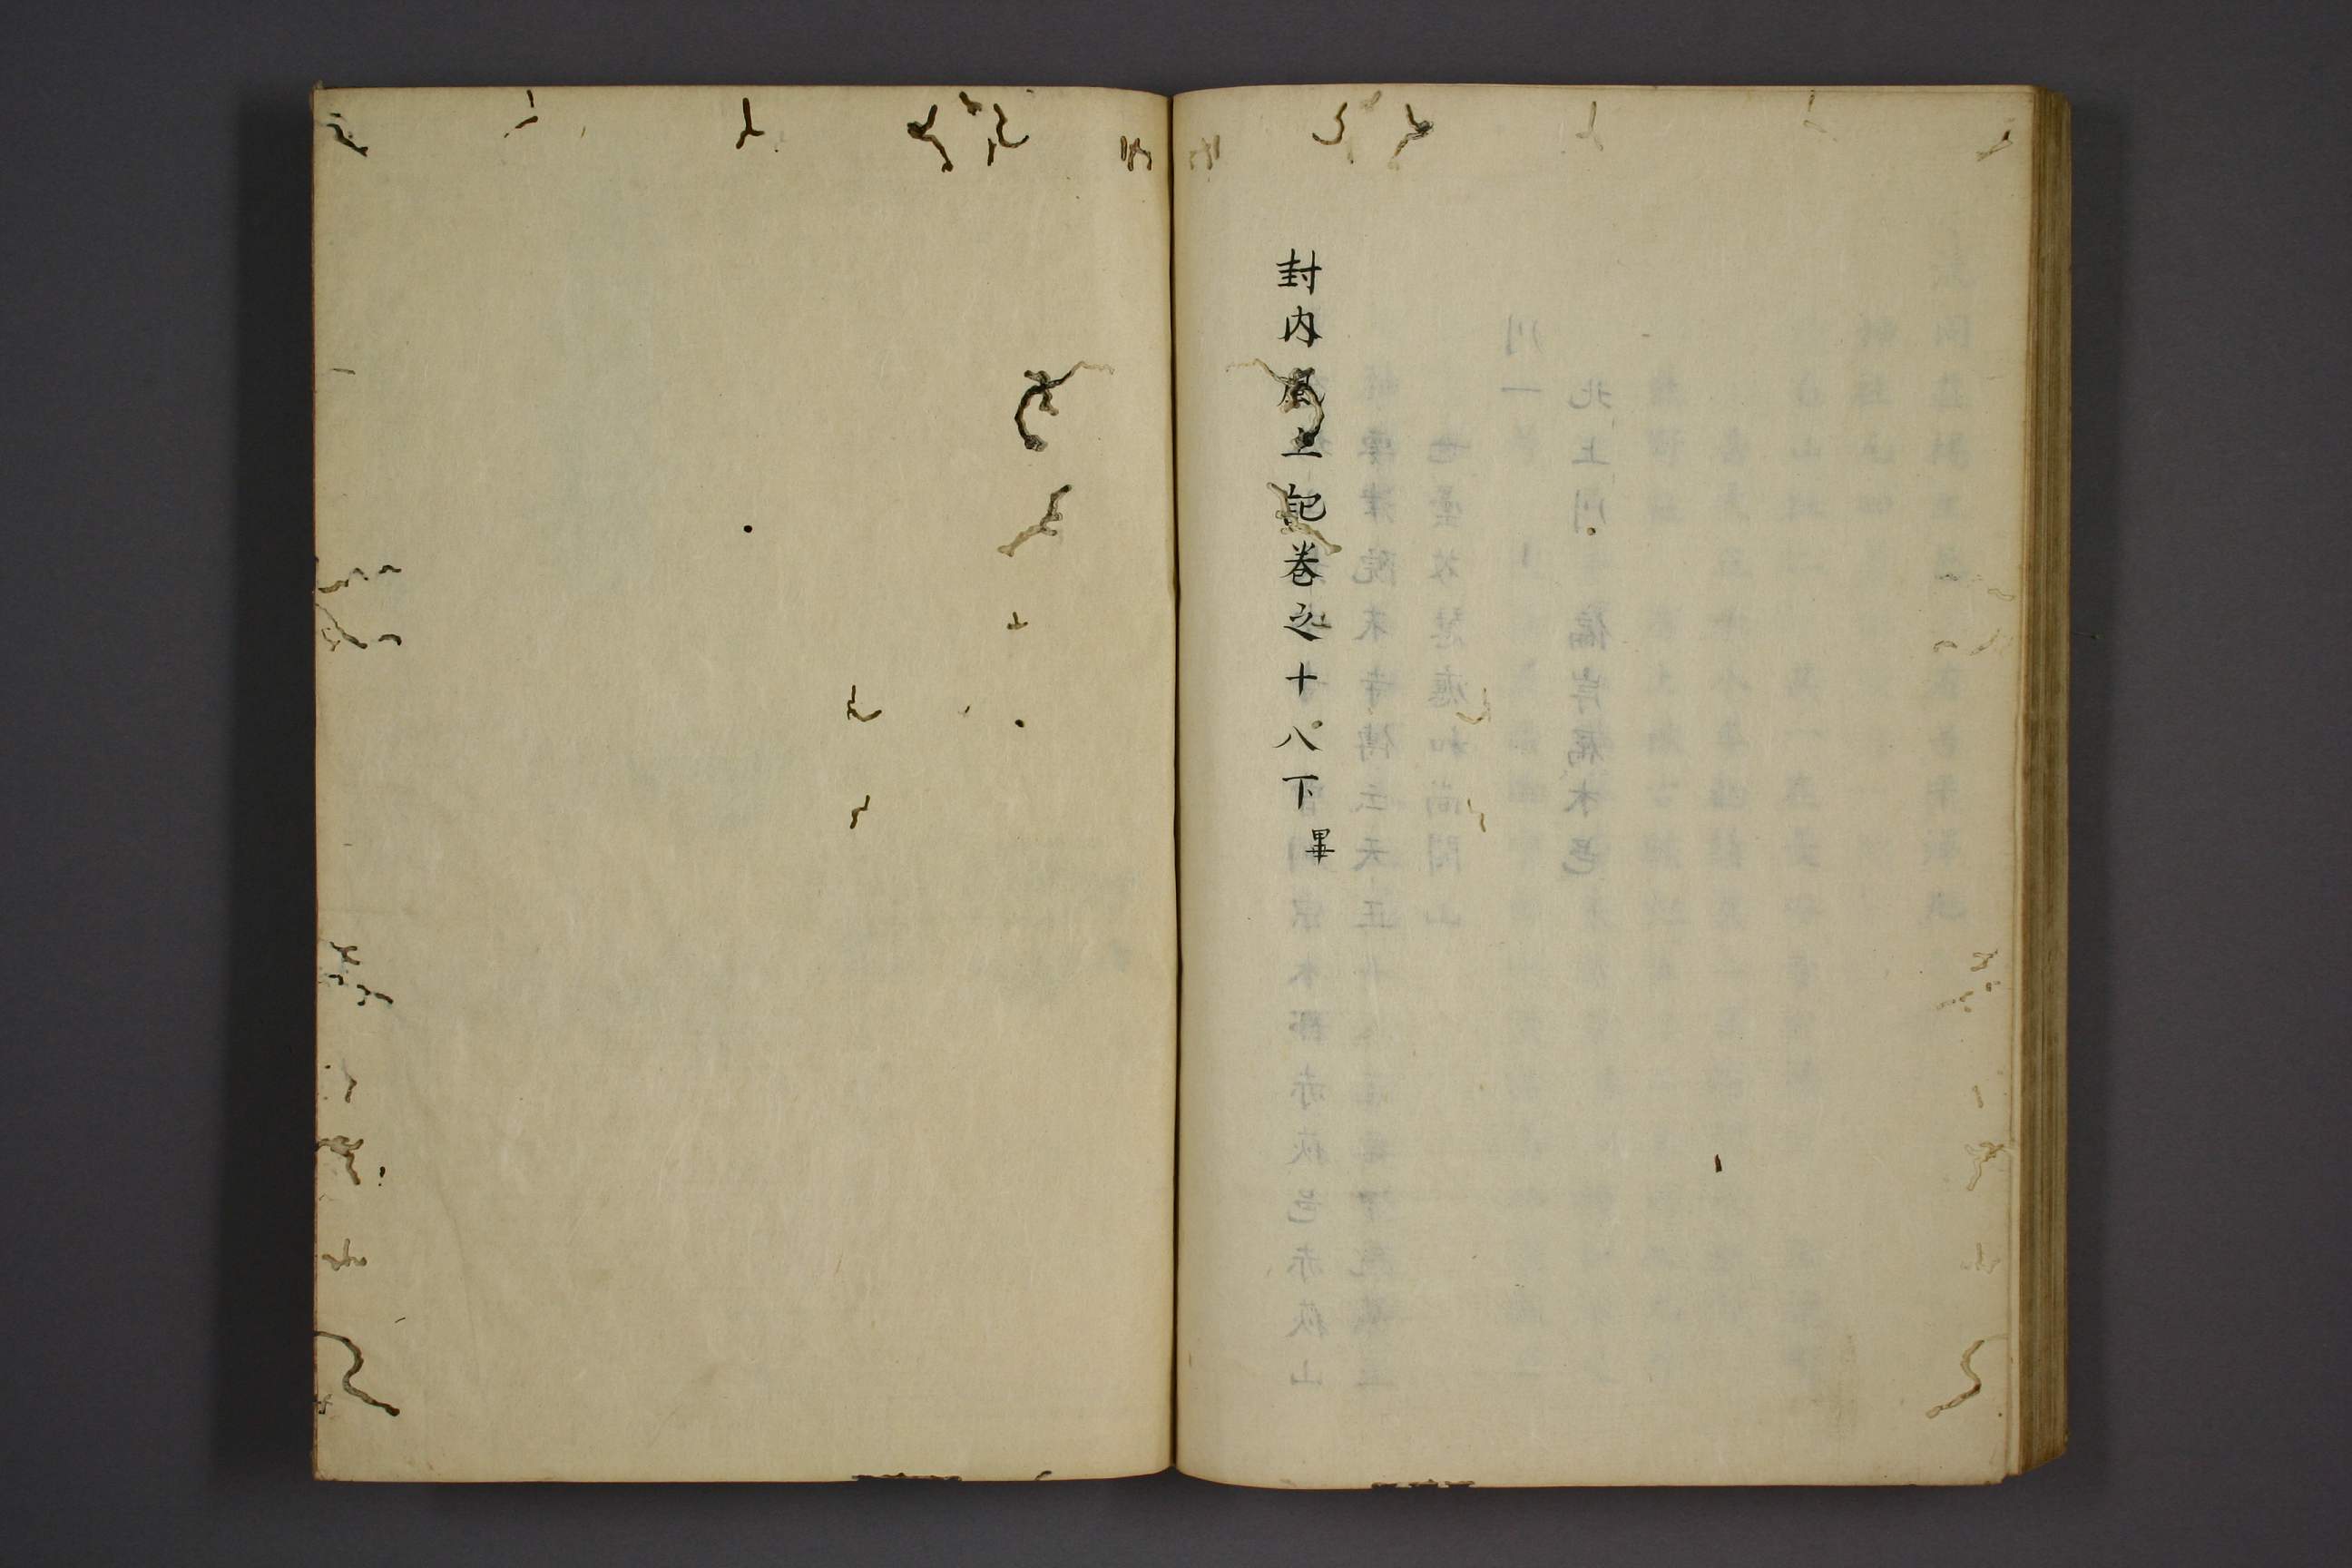 封内風土記卷之十八下畢